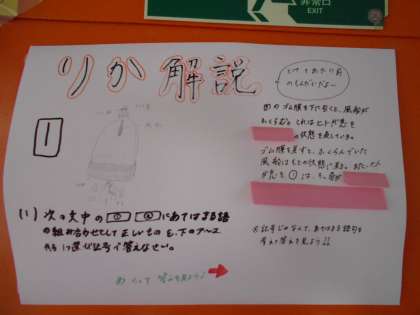 非常口
EXIT
りか解説
とけてあたり前
のもんだいだよー
1
図のゴム膜を下に引くと、風船が
ふくらむ。これはヒトが息を
の状態を表している。
ゴム膜を戻すと、ふくらんでいた
風船はもとの状態に戻る。
(1) 次の文中の
にあてはまる語
の組み合わせとして正しいものを、下のア〜エ
から1つ選び記号で答えなさい。
※記号じゃなくて、あてはまる語句を
考えて答えを見よう!!
めくって答えを見よう!